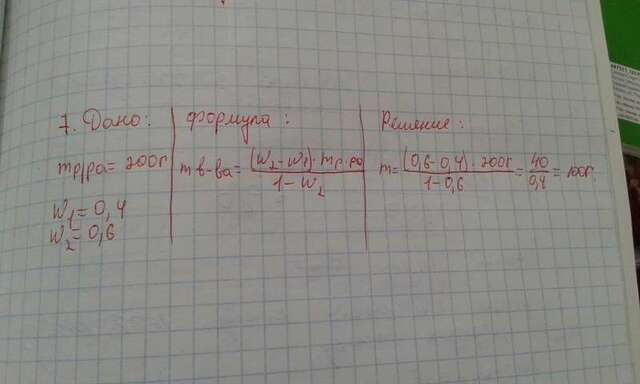 7. Дано:
mр/ра = 200г
W₁ = 0,4
W₂ = 0,6
формула:
m в-ва = (W₂ - W₁) · mр-ра / 1 - W₂
Решение:
m = (0,6 - 0,4) · 200г / 1 - 0,6 = 40 / 0,4 = 100г.